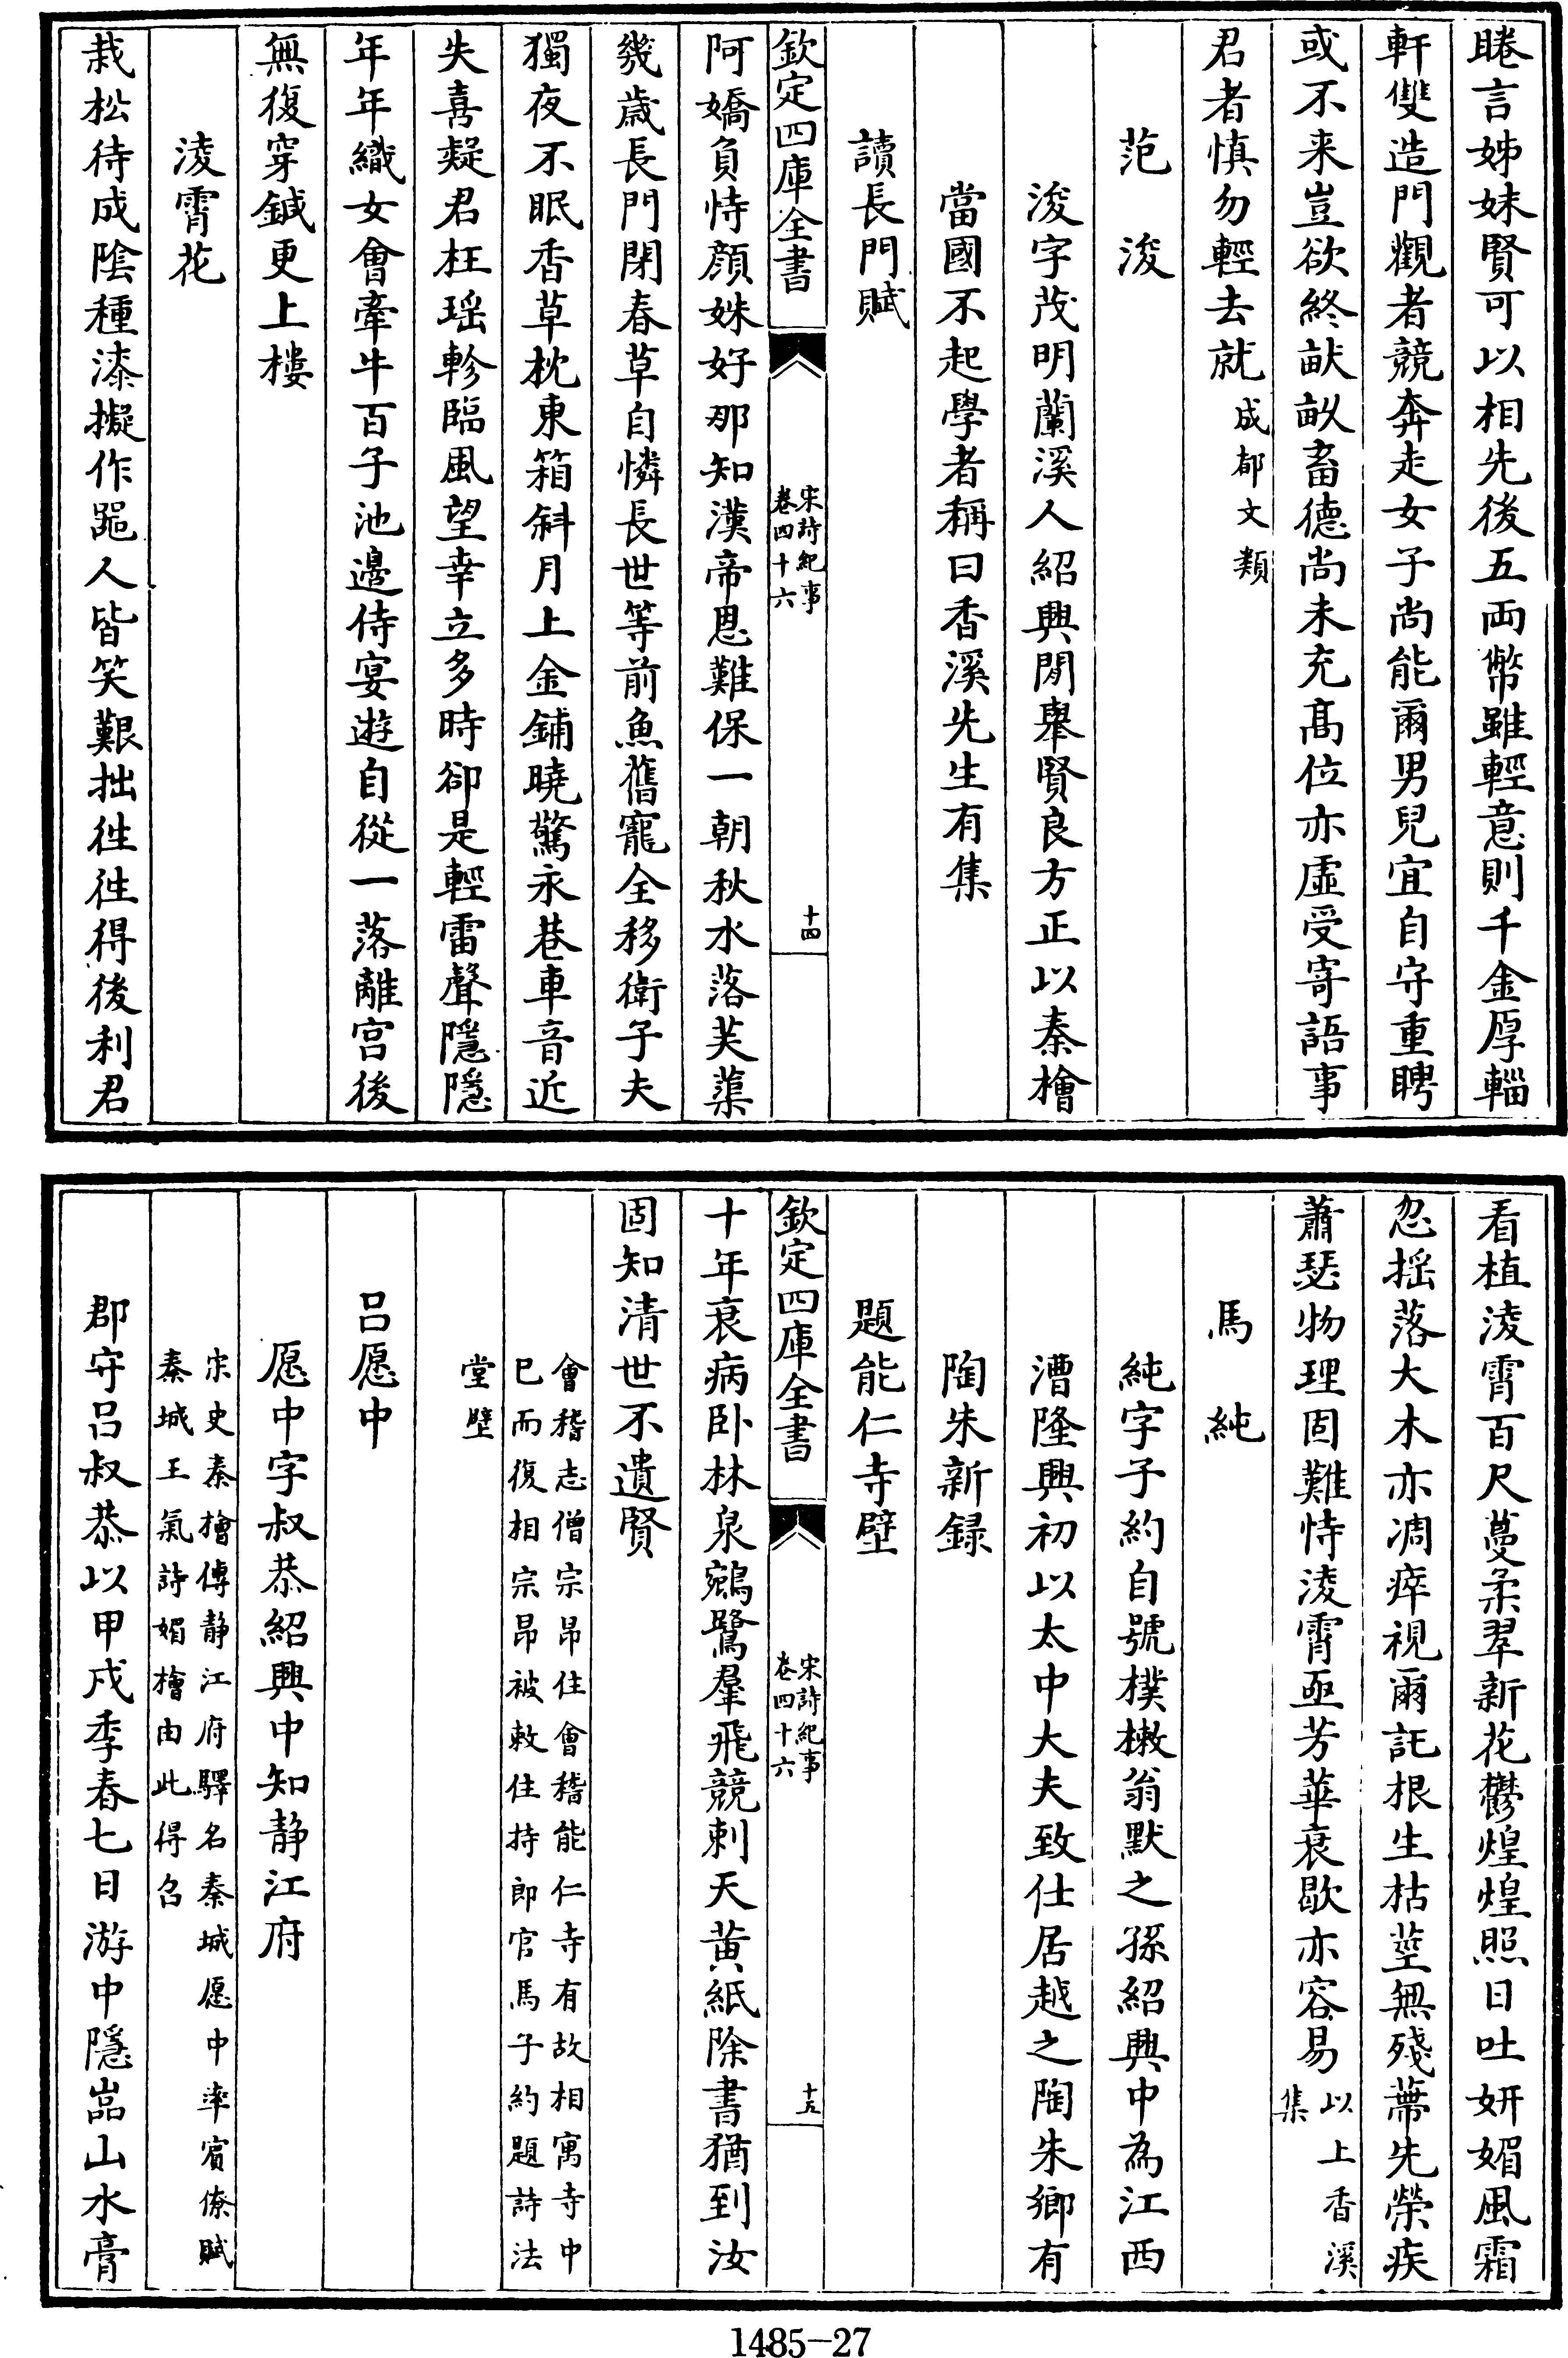 睠言姊妹賢可以相先後五兩幣雖輕意則千金厚輜
軒雙造門觀者競奔走女子尚能爾男兒宜自守重聘
或不来豈欲終畎畝畜德尚未充髙位亦虛受寄語事
君者慎勿輕去就成都文類
范浚
浚字茂明蘭溪人紹興間舉賢良方正以秦檜
當國不起學者稱曰香溪先生有集
讀長門賦
欽定四庫全書
宋詩紀事
卷四十六
十四
阿嬌負恃顔姝好那知漢帝恩難保一朝秋水落芙蕖
幾歲長門閉春草自憐長世等前魚舊寵全移衛子夫
獨夜不眠香草枕東箱斜月上金鋪曉驚永巷車音近
失喜疑君枉瑶軫臨風望幸立多時卻是輕雷聲隱隱
年年織女會牽牛百子池邊侍宴遊自從一落離宫後
無復穿鍼更上樓
淩霄花
栽松待成隂種漆擬作器人皆笑艱拙往往得後利君
看植淩霄百尺蔓柔翠新花鬱煌煌照日吐妍媚風霜
忽揺落大木亦凋瘁視爾託根生枯莖無殘蔕先榮疾
蕭瑟物理固難恃淩霄亟芳華衰歇亦容易以上香溪
集
馬純
純字子約自號樸樕翁默之孫紹興中為江西
漕隆興初以太中大夫致仕居越之陶朱鄉有
陶朱新録
題能仁寺壁
欽定四庫全書
宋詩紀事
卷四十六
十五
十年衰病卧林泉鵷鷺羣飛競刺天黄紙除書猶到汝
固知清世不遺賢
會稽志僧宗昂住會稽能仁寺有故相寓寺中
已而復相宗昂被敕住持郎官馬子約題詩法
堂壁
吕愿中
愿中字叔恭紹興中知静江府
宋史秦檜傳静江府驛名秦城愿中率賓僚賦
秦城王氣詩媚檜由此得召
郡守吕叔恭以甲戌季春七日游中隱嵓山水膏
1485-27